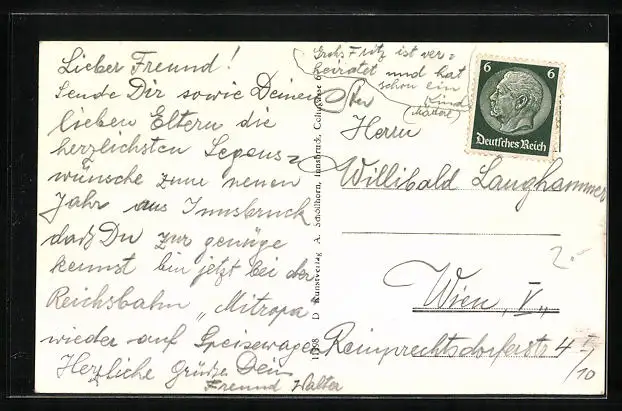 Lieber Freund!
Sende Dir sowie Deinen
lieben Eltern die
herzlichsten Segens=
wünsche zum neuen
Jahr aus Innsbruck
daß Du zur genüge
kennst bin jetzt bei der
Reichsbahn „Mitropa"
wieder auf Speisewagen
Herzliche Grüße Dein
Freund Walter
Fritz ist ver=
heiratet und hat
schon ein
Kind
11398 D Kunstverlag A. Schöllhorn, Innsbruck,
6 6
Deutsches Reich
Herrn
Willibald Langhammer
Wien, V.,
Reinprechtsdorferstr 4
I/10
2.-